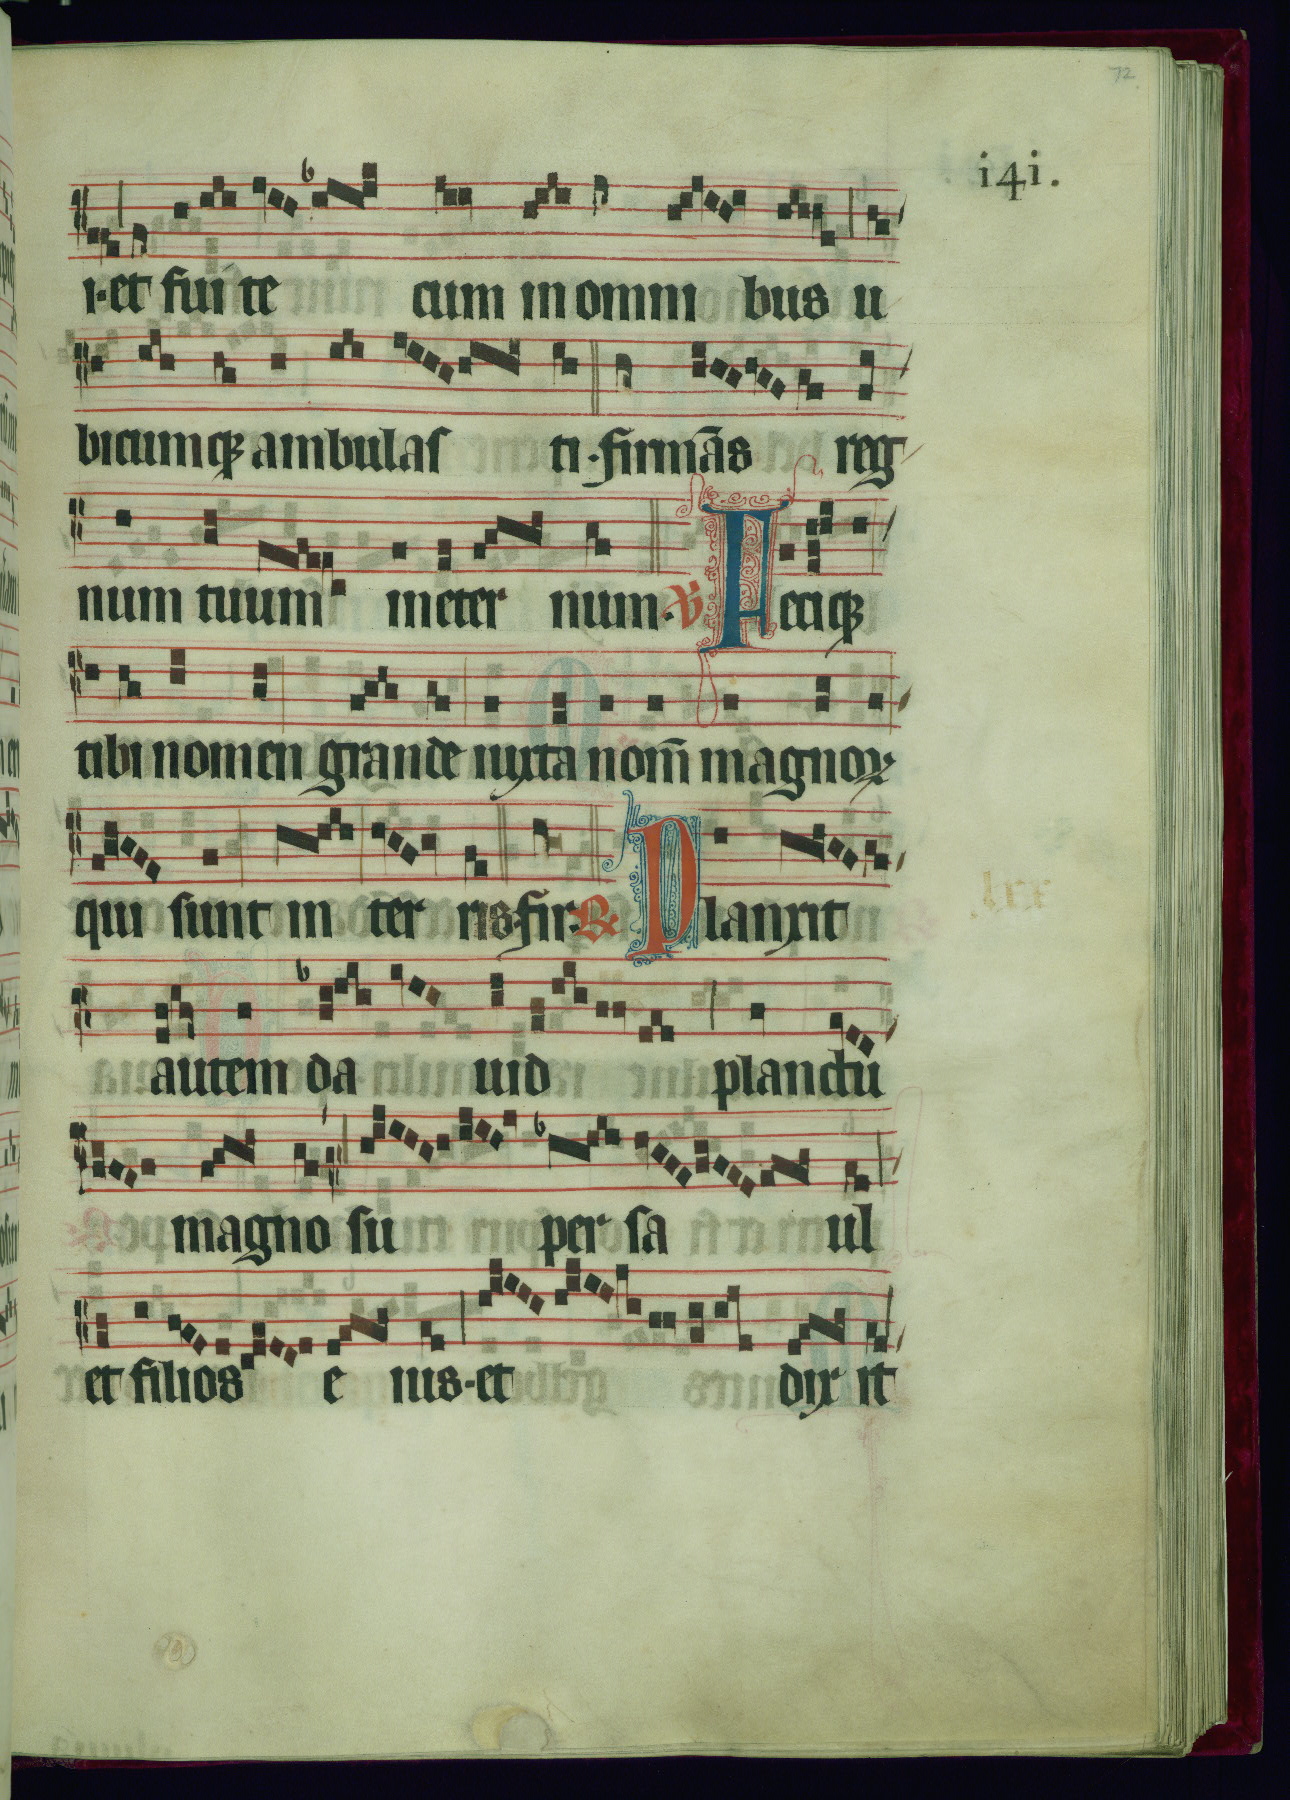 72
i4i.
i·et fui te cum in omni bus u
bicumq̢ ambulas ti·firmãs reg
num tuum in eter num. ℣ Feciq̢
tibi nomen grande iuxta nom̃ magnoꝝ
qui sunt in ter ris·fir· ℟ Planxit
autem da uid planctū
magno su per sa ul
et filios e ius·et dix it